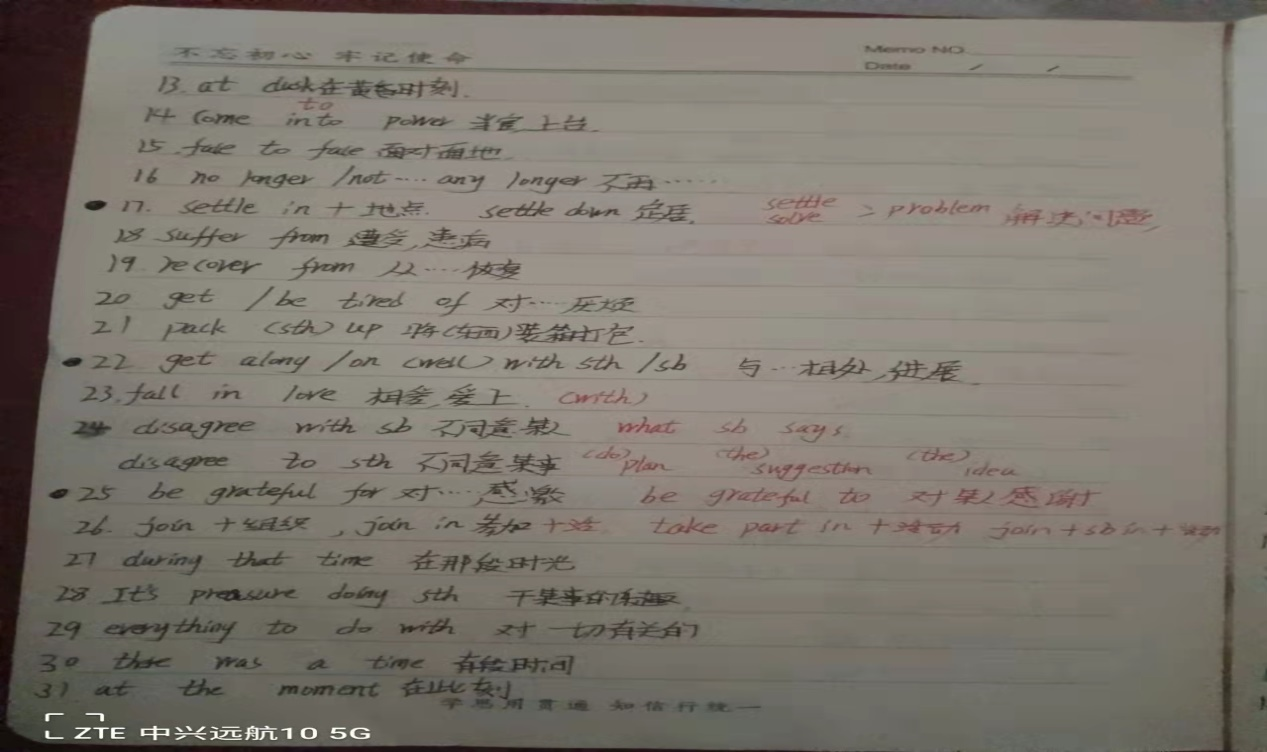 不忘初心 牢记使命
Memo NO.
Date / /
13. at dusk 在黄昏时刻.
to
14 Come into power 当官上台.
15. face to face 面对面地
16 no longer /not .... any longer 不再......
17. settle in + 地点. settle down 定居. settle solve > problem 解决问题,
18 suffer from 遭受,患病
19. recover from 从....恢复
20 get /be tired of 对....厌烦
21 pack (sth) up 将(东西)装箱打包.
22 get along /on (well) with sth /sb 与...相处,进展
23. fall in love 相爱,爱上. (with)
24 disagree with sb 不同意某人 what sb says.
disagree to sth 不同意某事 (do) plan (the) suggestion (the) idea
25 be grateful for 对....感激 be grateful to 对某人感谢
26. join + 组织, join in 参加 + 活 take part in + 活动 join + sb in + 活动
27 during that time 在那段时光
28 It's pleasure doing sth 干某事的乐趣
29 everything to do with 对一切有关的
30 there was a time 有段时间
31 at the moment 在此刻
学思用贯通 知信行统一
ZTE 中兴远航10 5G